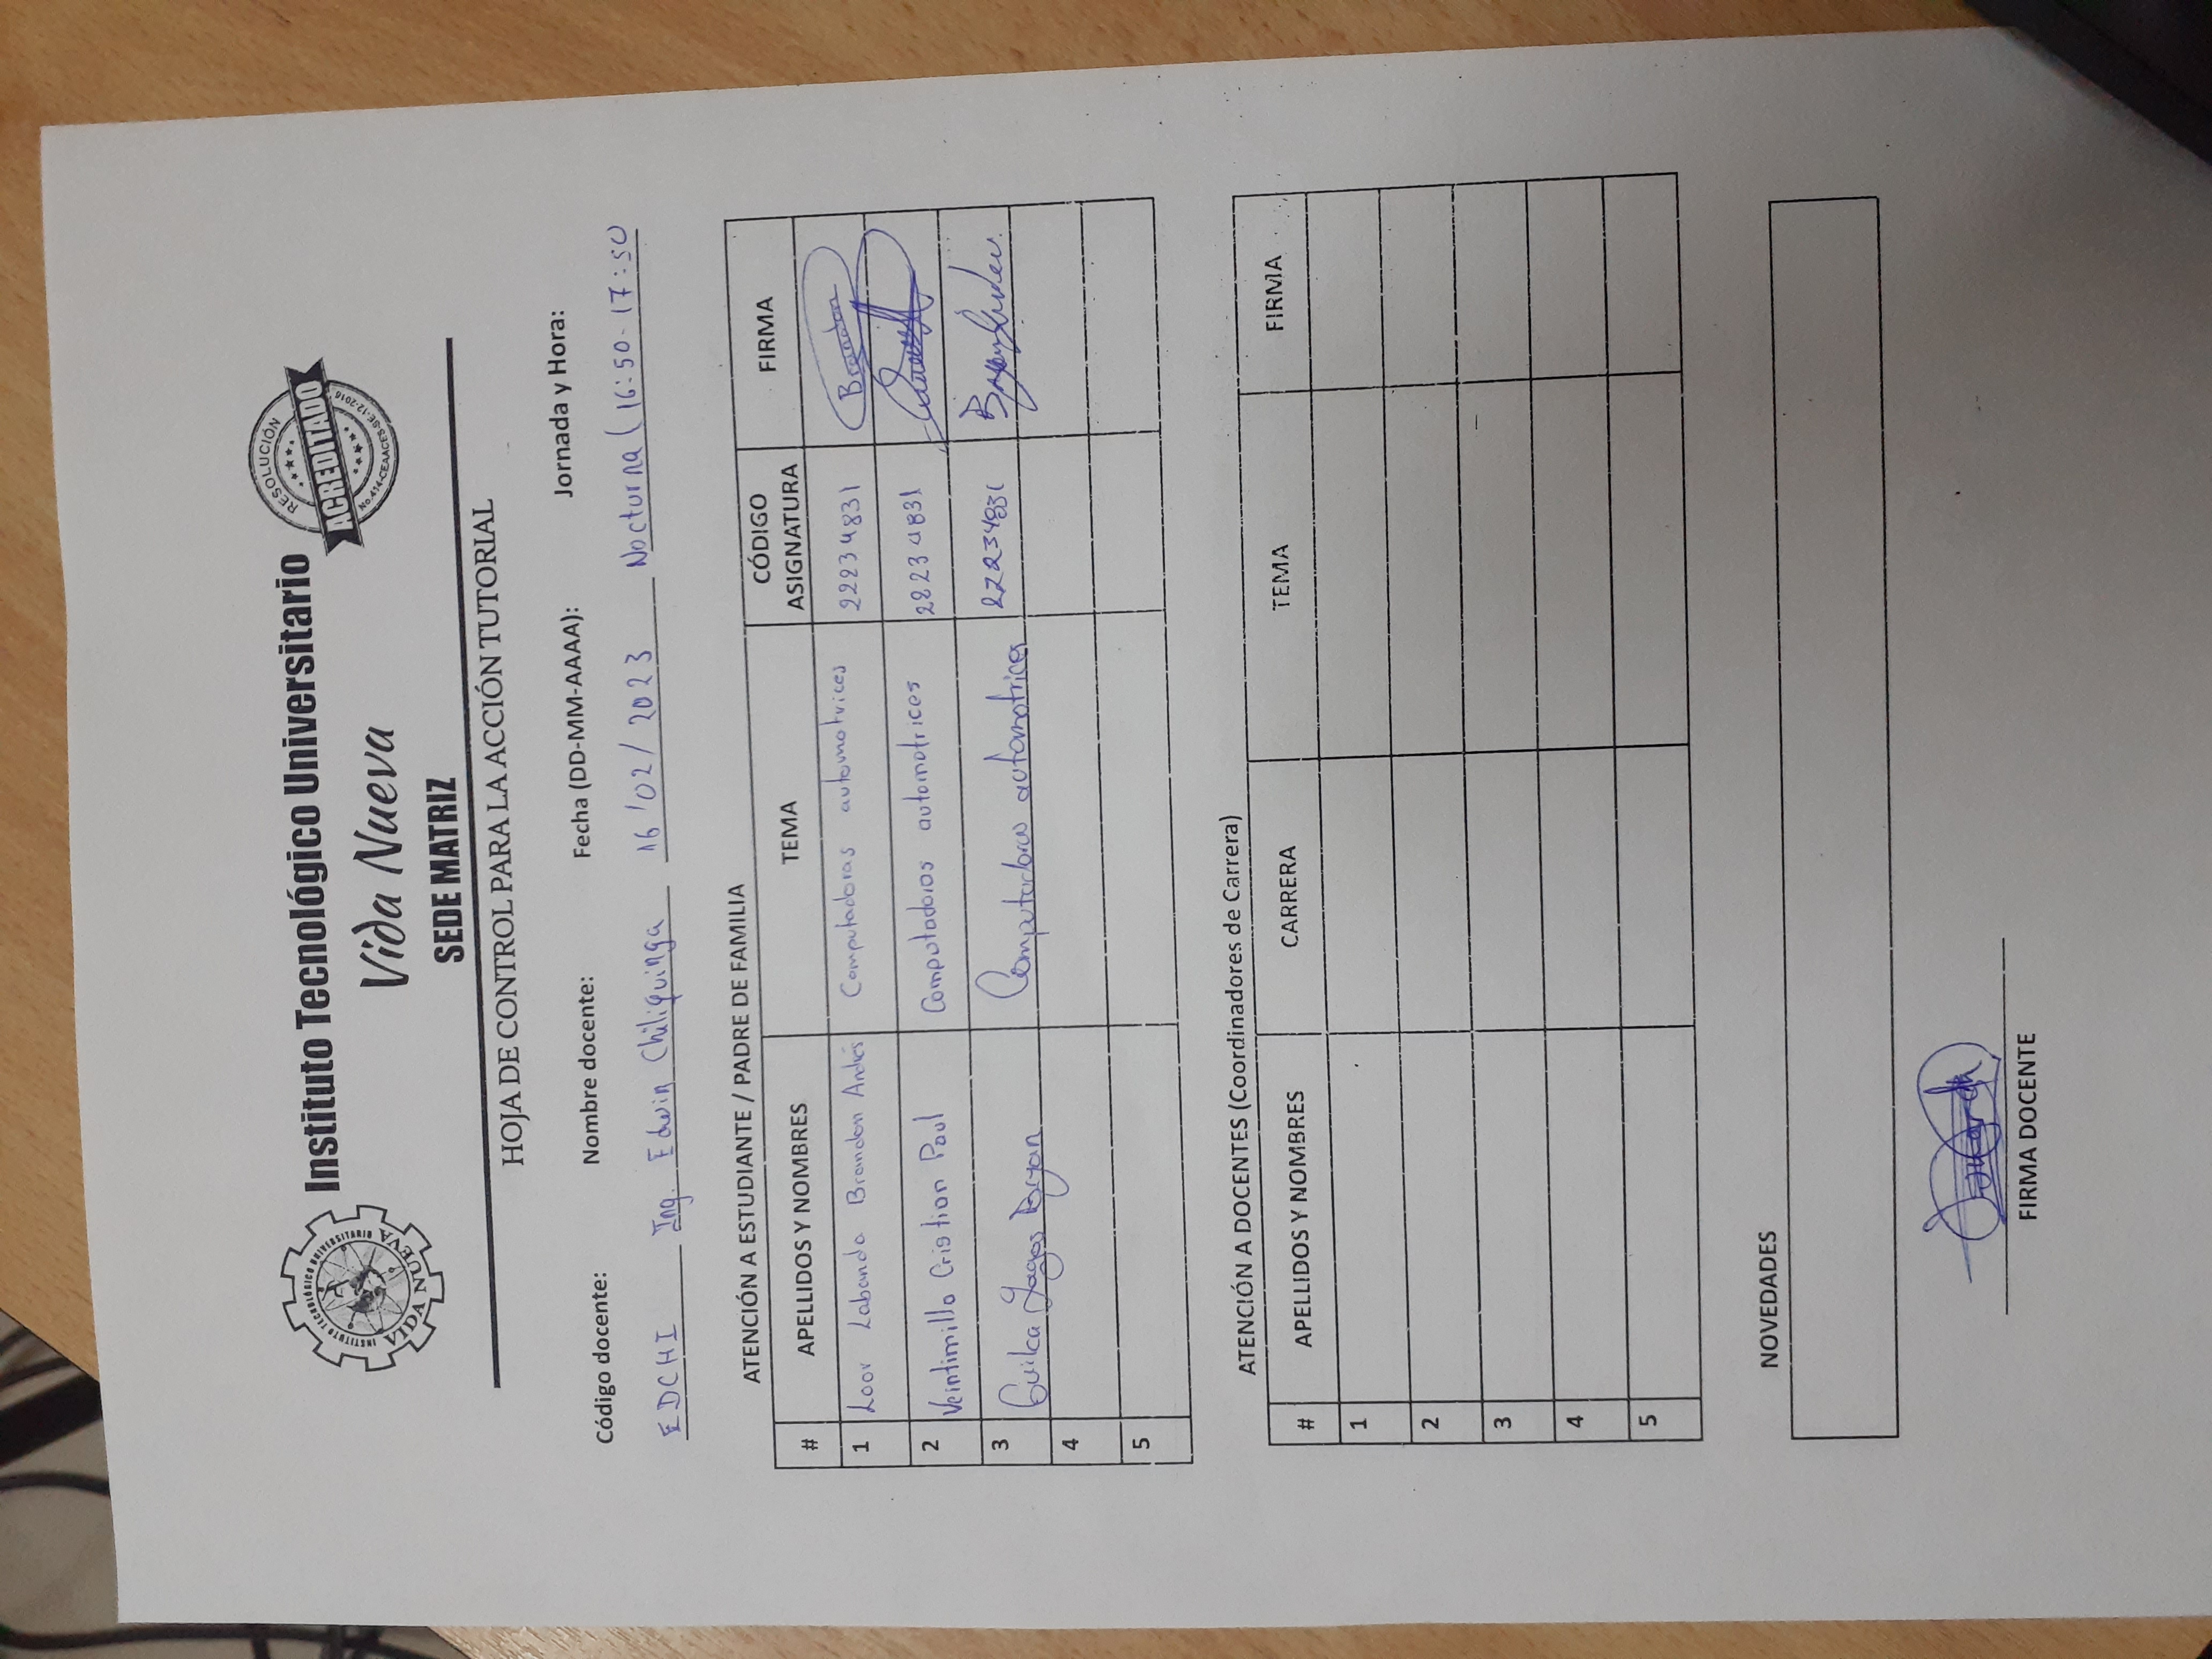 INSTITUTO TECNOLÓGICO UNIVERSITARIO
VIDA NUEVA
Instituto Tecnológico Universitario
Vida Nueva
SEDE MATRIZ
RESOLUCIÓN
ACREDITADO
No.414-CEAACES-SE-12-2016
HOJA DE CONTROL PARA LA ACCIÓN TUTORIAL
Código docente: Nombre docente: Fecha (DD-MM-AAAA): Jornada y Hora:
EDCHI Ing. Edwin Chiliquinga 16/02/2023 Nocturna (16:50-17:50
ATENCIÓN A ESTUDIANTE / PADRE DE FAMILIA
# APELLIDOS Y NOMBRES TEMA CÓDIGO ASIGNATURA FIRMA
1 Loor Labanda Brandon Andrés Computadoras automotrices 22234831 Brandon
2 Veintimilla Cristian Paul Computadoras automotrices 22234831
3 Guilca Yagos Bryan Computadoras automotrices 22234831
4
5
ATENCIÓN A DOCENTES (Coordinadores de Carrera)
# APELLIDOS Y NOMBRES CARRERA TEMA FIRMA
1
2
3
4
5
NOVEDADES
FIRMA DOCENTE